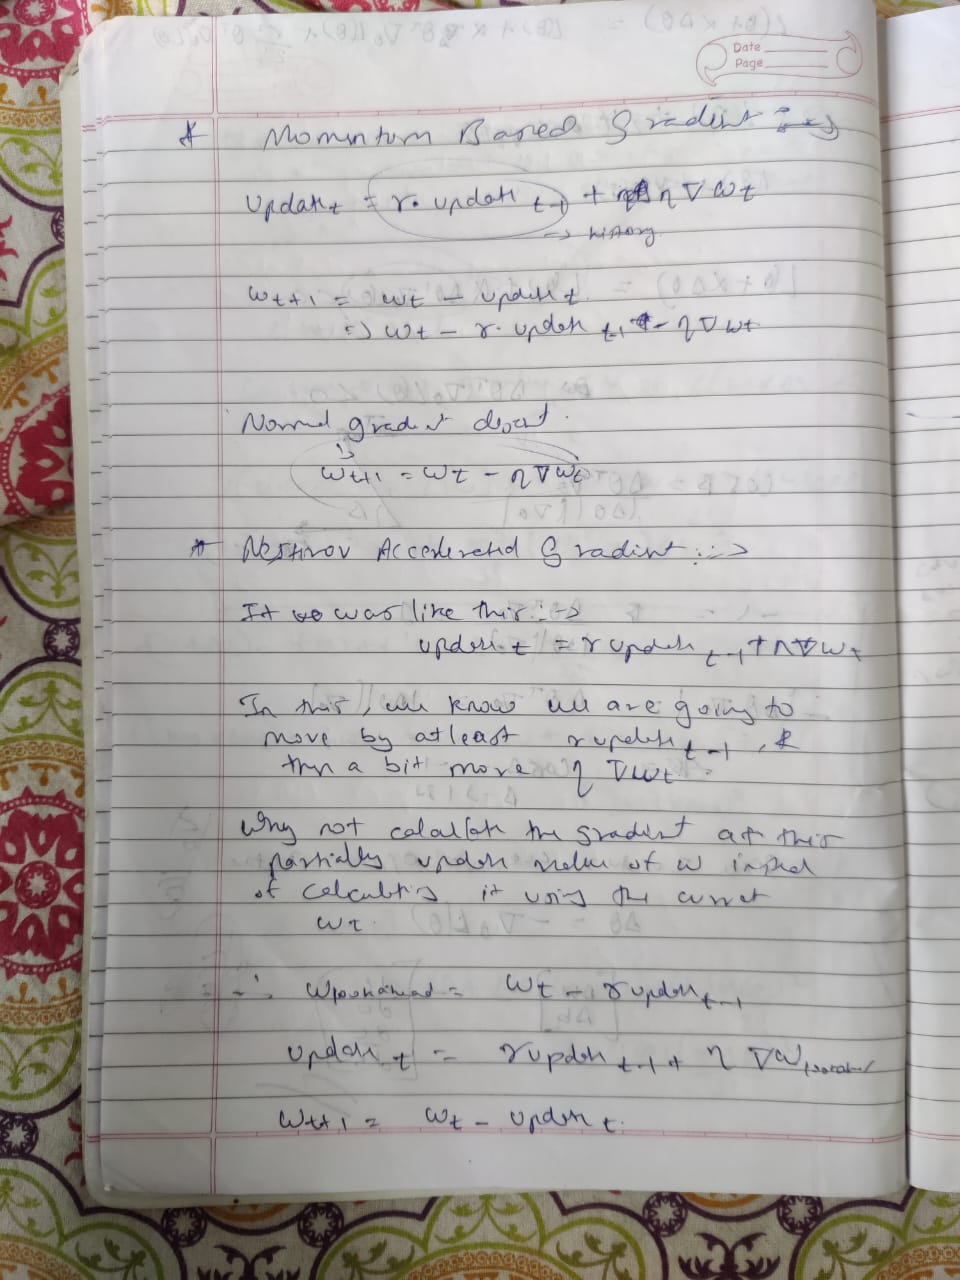 Date
Page
* Momentum Based Gradient :->
Update t = r. update t-1 + η ∇ wt
-> history
wt+1 = wt - update t
=> wt - r. update t-1 - η ∇ wt
Normal gradient descent.
wt+1 = wt - η ∇ wt
* Nestrov Accelerated Gradient :->
It was like this :->
update t = r update t-1 + η ∇ wt
In this, we know we are going to
move by atleast r update t-1, &
then a bit more η ∇wt.
Why not calculate the gradient at this
partially update value of w instead
of calculating it using the current
wt.
∴ wlookahead = wt - r update t-1
update t = r update t-1 + η ∇w lookahead
wt+1 = wt - update t.